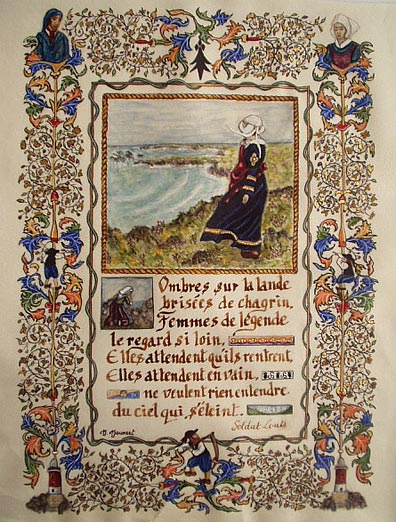 Ombres sur la lande
brisées de chagrin,
Femmes de légende
le regard si loin,
Elles attendent qu'ils rentrent
Elles attendent en vain,
ne veulent rien entendre
du ciel qui s'éteint.
Soldat Louis